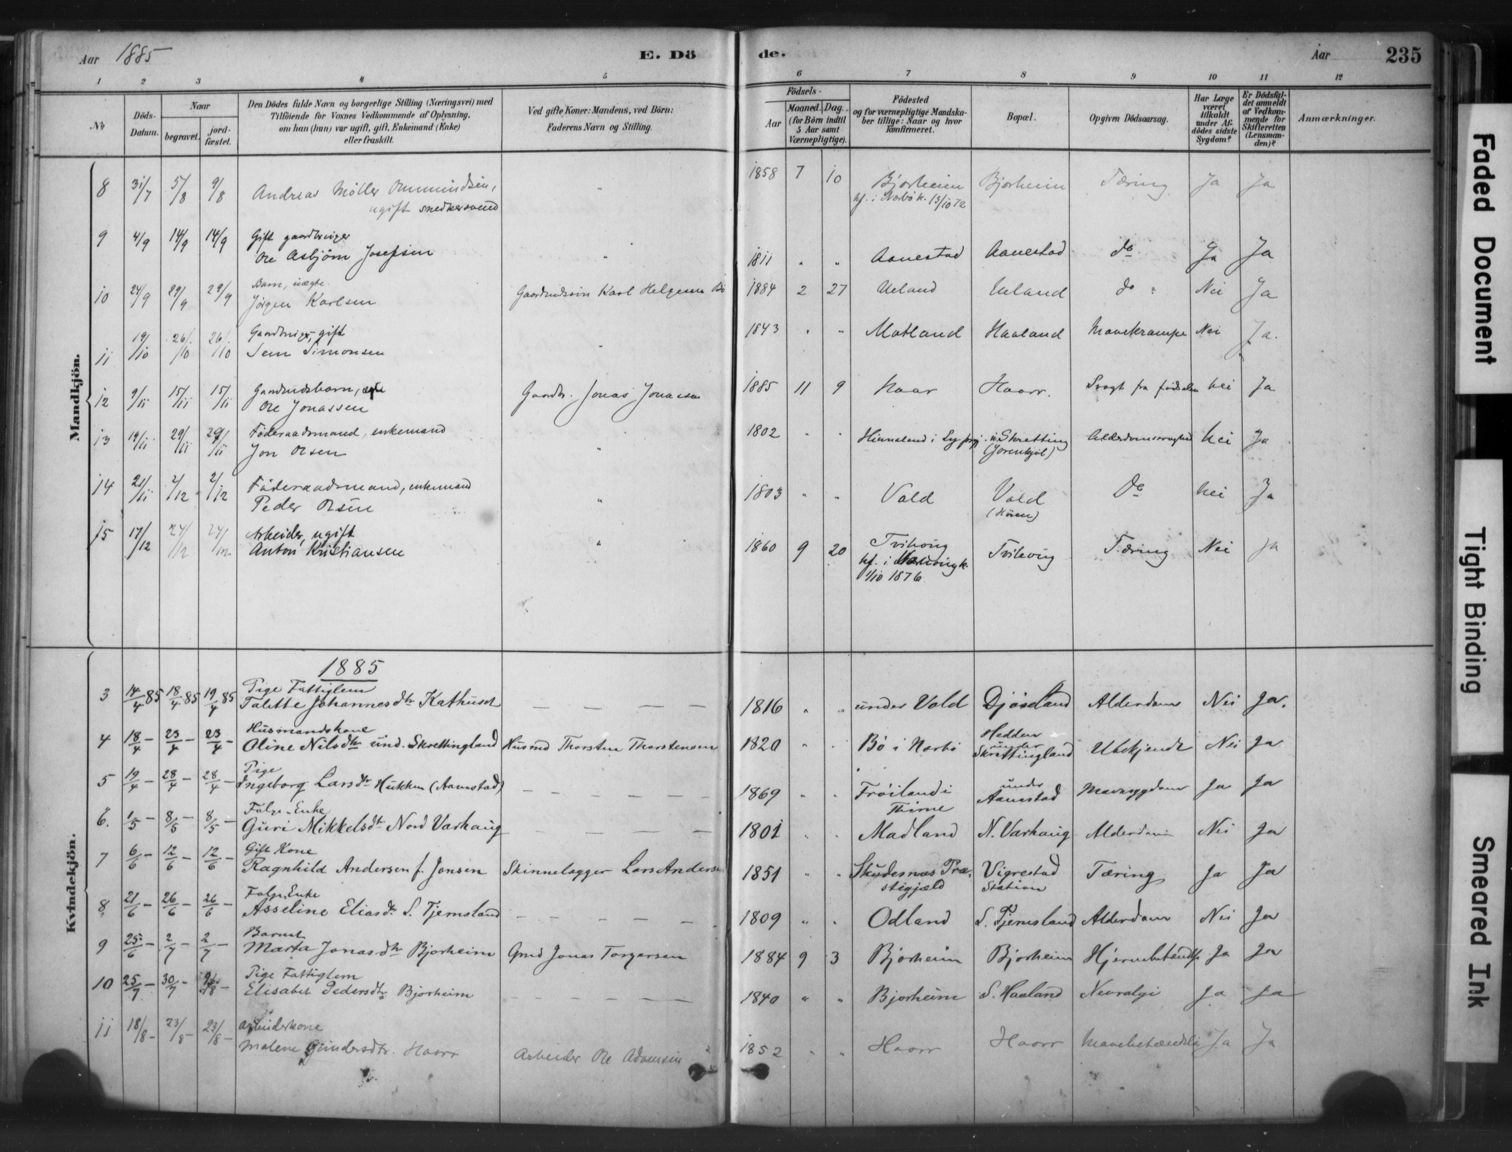 Aar 1885 E. Dö de. Aar 235
1 2 3 4 5 6 7 8 9 10 11 12
No. Döds-Datum. Naar begravet. jord-fæstet. Den Dödes fulde Navn og borgerlige Stilling (Næringsvei) med Tilföiende for Voxnes Vedkommende af Oplysning, om han (hun) var ugift, gift, Enkemand (Enke) eller fraskilt. Ved gifte Koner: Mandens, ved Börn: Faderens Navn og Stilling. Födsels- Aar Maaned. Dag. (for Börn indtil 5 Aar samt Værnepligtige). Födested og for værnepligtige Mandskaber tillige: Naar og hvor konfirmeret. Bopæl. Opgiven Dödsaarsag. Har Læge været tilkaldt under Afdödes sidste Sygdom? Er Dödsfaldet anmeldt af Vedkommende for Skifteretten (Lensmanden)? Anmærkninger.
Mandkjön.
8 31/7 5/8 9/8 Andreas Möller Ommundsen, 1858 7 10 Bjorheim Bjorheim Tæring Ja Ja
ugift snedkersvend kf. i 13/10 72
9 4/9 14/9 14/9 Gift gaardbruger
Ole Asbjörn Josefsen " 1811 " " Aanestad Aanestad do Ja Ja
10 24/9 29/9 29/9 Barn, uægte
Jörgen Karlsen Karl Helgesen 1884 2 27 Ueland Ueland do " Nei Ja
11 19/10 26/10 26/10 Gaardbruger, gift
Simonsen " 1843 " " Motland Haaland Mavekrampe Nei Ja.
12 9/11 15/11 15/11 Gaardmdsbarn, ægte
Ole Jonassen Gaardbr. Jonas Jonassen 1885 11 9 Haar Haarr. Svagt fra födselen Nei Ja
13 14/11 29/11 29/11 Föderaadsmand, enkemand
Jon Olsen " 1802 " " i Skretting Alderdomssvaghed Nei Ja
14 21/11 2/12 2/12 Föderaadsmand, enkemand
Peder Olsen " 1803 " " Vold Vold Do Nei Ja
15 17/12 27/12 27/12 Arbeider, ugift
Anton Kristiansen " 1860 9 20 Tvihoug Tvihoug Tæring Nei Ja
kf. i
1/10 1876
Kvindekjön.
1885
3 14/4 85 18/4 85 19/4 85 Pige Fattiglem
Talette Johannesdtr — — — — — 1816 " " under Vold Djösland Alderdom Nei Ja.
4 18/4 — 23/4 — 23/4 — Husmandskone
Oline Nilsdtr und. Skrettingland Husmd Thorsten Thorstensen 1820 " Bö i Norbö Hedden under Skrettingland Ubekjendt Nei Ja
5 19/4 — 28/4 — 28/4 — Pige
Ingeborg Larsdtr (Aanestad) — — — — — 1869 " " Fröiland i Thime under Aanestad Mavesygdom Ja Ja
6. 1/5 — 8/5 — 8/5 — Folge-Enke
Guri Mikkelsdtr Nord Varhaug — — — — — 1801 " " Madland N. Varhaug Alderdom Nei Ja
7 6/6 — 12/6 — 12/6 — Gift Kone
Ragnhild Andersen f. Jonsen Skinnelægger Lars Andersen 1851 " " Skudesnæs Præstegjæld Vigrestad Station Tæring Ja Ja
8 21/6 — 26/6 — 26/6 — Folge-Enke
Asseline Eliasdtr S. Tjemsland — — — — — 1809 " " Odland S. Tjemsland Alderdom Nei Ja
9 25/6 — 2/7 — 2/7 — Barnet
Marta Jonasdtr Bjorheim Gmd Jonas Torgersen 1884 9 3 Bjorheim Bjorheim Hjernebetændelse Ja Ja
10 25/7 30/7 — Pige Fattiglem
Elisabet Pedersdtr Bjorheim — — — — — 1840 " " Bjorheim S. Haaland Nevralgi Ja Ja
11 18/8 — 23/8 — 23/8 — Arbeiderkone
Malene Haarr Arbeider Ole 1852 " " Haarr Haarr Mavebetændelse Ja Ja
Faded Document
Tight Binding
Smeared Ink